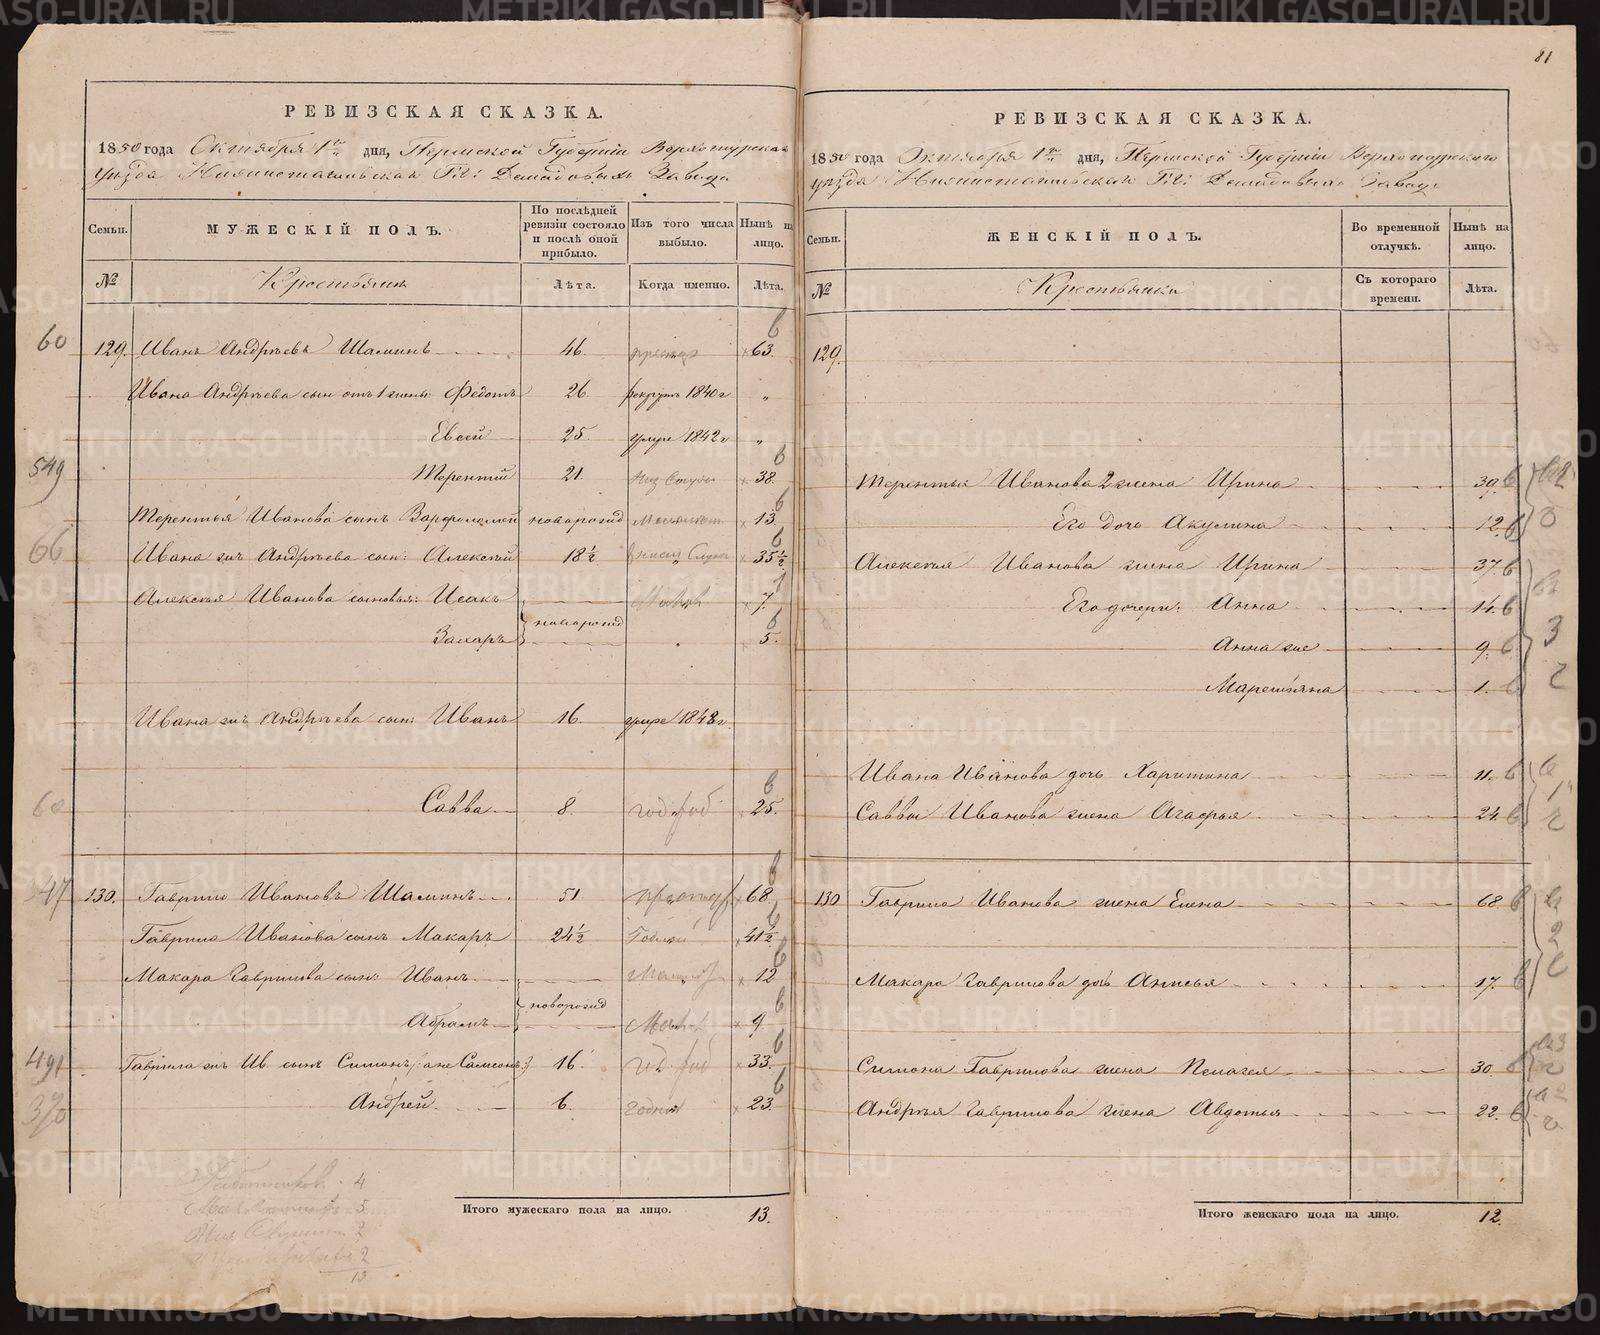 81
РЕВИЗСКАЯ СКАЗКА.
1850 года Октября 1го дня, Пермской Губерніи Верхотурскаго
уѣзда Нижнетагильскаго Гг: Демидовыхъ Завода
Семьи.
МУЖЕСКІЙ ПОЛЪ.
По послѣдней ревизіи состояло и послѣ оной прибыло.
Изъ того числа выбыло.
Нынѣ на лицо.
№
Крестьяне
Лѣта.
Когда именно.
Лѣта.
60 129. Иванъ Андрѣевъ Шаминъ 46. 63. 6
Ивана Андрѣева сынъ отъ 1 жены: Федотъ 26. рекрутъ 1840 г „
Евсей 25. умре 1842 г „
549 Терентій 21. 38. 6
Терентья Иванова сынъ Варфоломей новорожд 13. 6
66 Ивана жъ Андрѣева сын: Алексѣй 18½ 35½ 6
Алексѣя Иванова сыновья: Исакъ новорожд 7.
Захаръ 5. 6
Ивана жъ Андрѣева сын: Иванъ 16. умре 1848 г
60 Савва 8. 25. 6
347 130. Гаврило Ивановъ Шаминъ 51 68. 6
Гаврила Иванова сынъ Макаръ 24½ 41½ 6
Макара Гаврилова сын: Иванъ новорожд 12 6
Абрамъ 9. 6
491 Гаврила жъ Ив. сынъ Симонъ (: а не Самсонъ :) 16. 33. 6
370 Андрей 6. 23. 6
4
5
2
2
13
Итого мужескаго пола на лицо. 13.
РЕВИЗСКАЯ СКАЗКА.
1850 года Октября 1го дня, Пермской Губерніи Верхотурскаго
уѣзда Нижнетагильскаго Гг: Демидовыхъ Завода
Семьи.
ЖЕНСКІЙ ПОЛЪ.
Во временной отлучкѣ.
Нынѣ на лицо.
№
Крестьянки
Съ котораго времени.
Лѣта.
129.
Терентья Иванова 2 жена Ирина 39. 6
Его дочь Акулина 12. 6
Алексѣя Иванова жена Ирина 37. 6
Его дочери: Анна 14. 6
Анна же 9. 6
Маремьяна 1. 6
3
Ивана Иванова дочь Харитина 11. 6
Саввы Иванова жена Агафья 24. 6
130 Гаврила Иванова жена Елена 68. 6
Макара Гаврилова дочь Анисья 17. 6
Симона Гаврилова жена Пелагея 30. 6
Андрѣя Гаврилова жена Авдотья 22. 6
Итого женскаго пола на лицо. 12.
METRIKI.GASO-URAL.RU